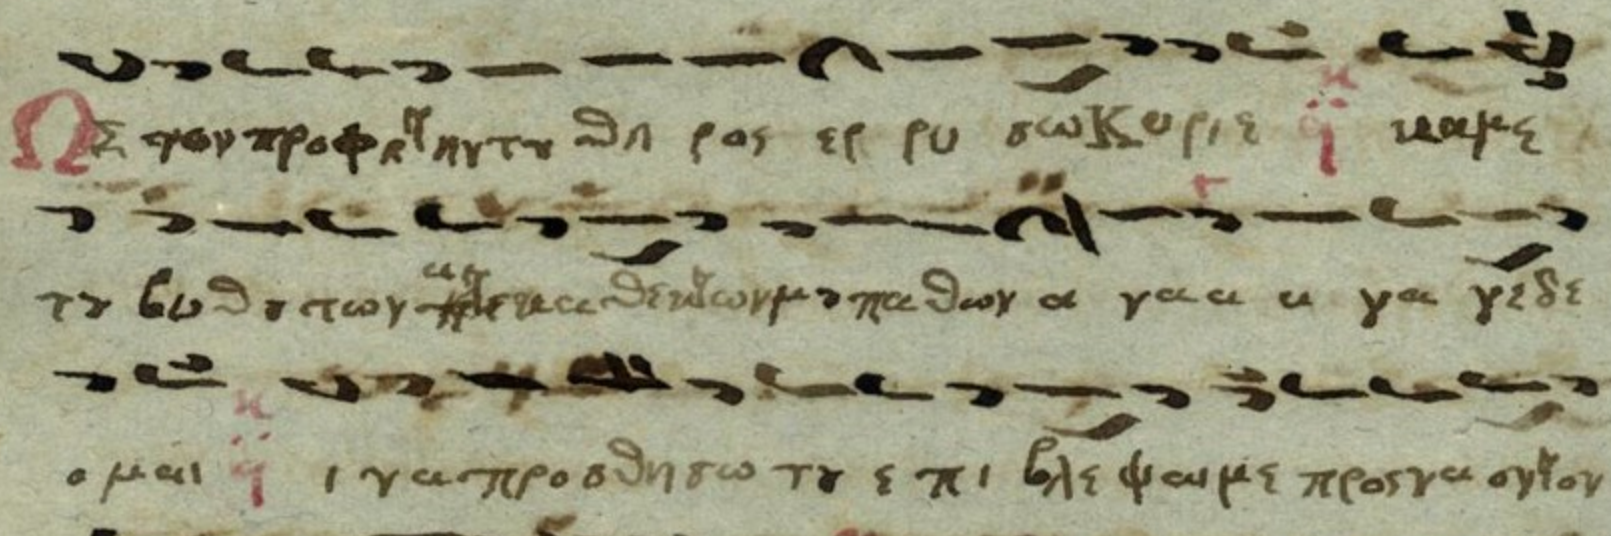 Ως τον προφητην του θη ρος ερ ρυ σω Κυριε καμε
του βυθου των ακαθεκτων μου παθων α γαα α γα γε δε
ο μαι ι να προσθησω του ε πι βλεψαι με προς ναον τον